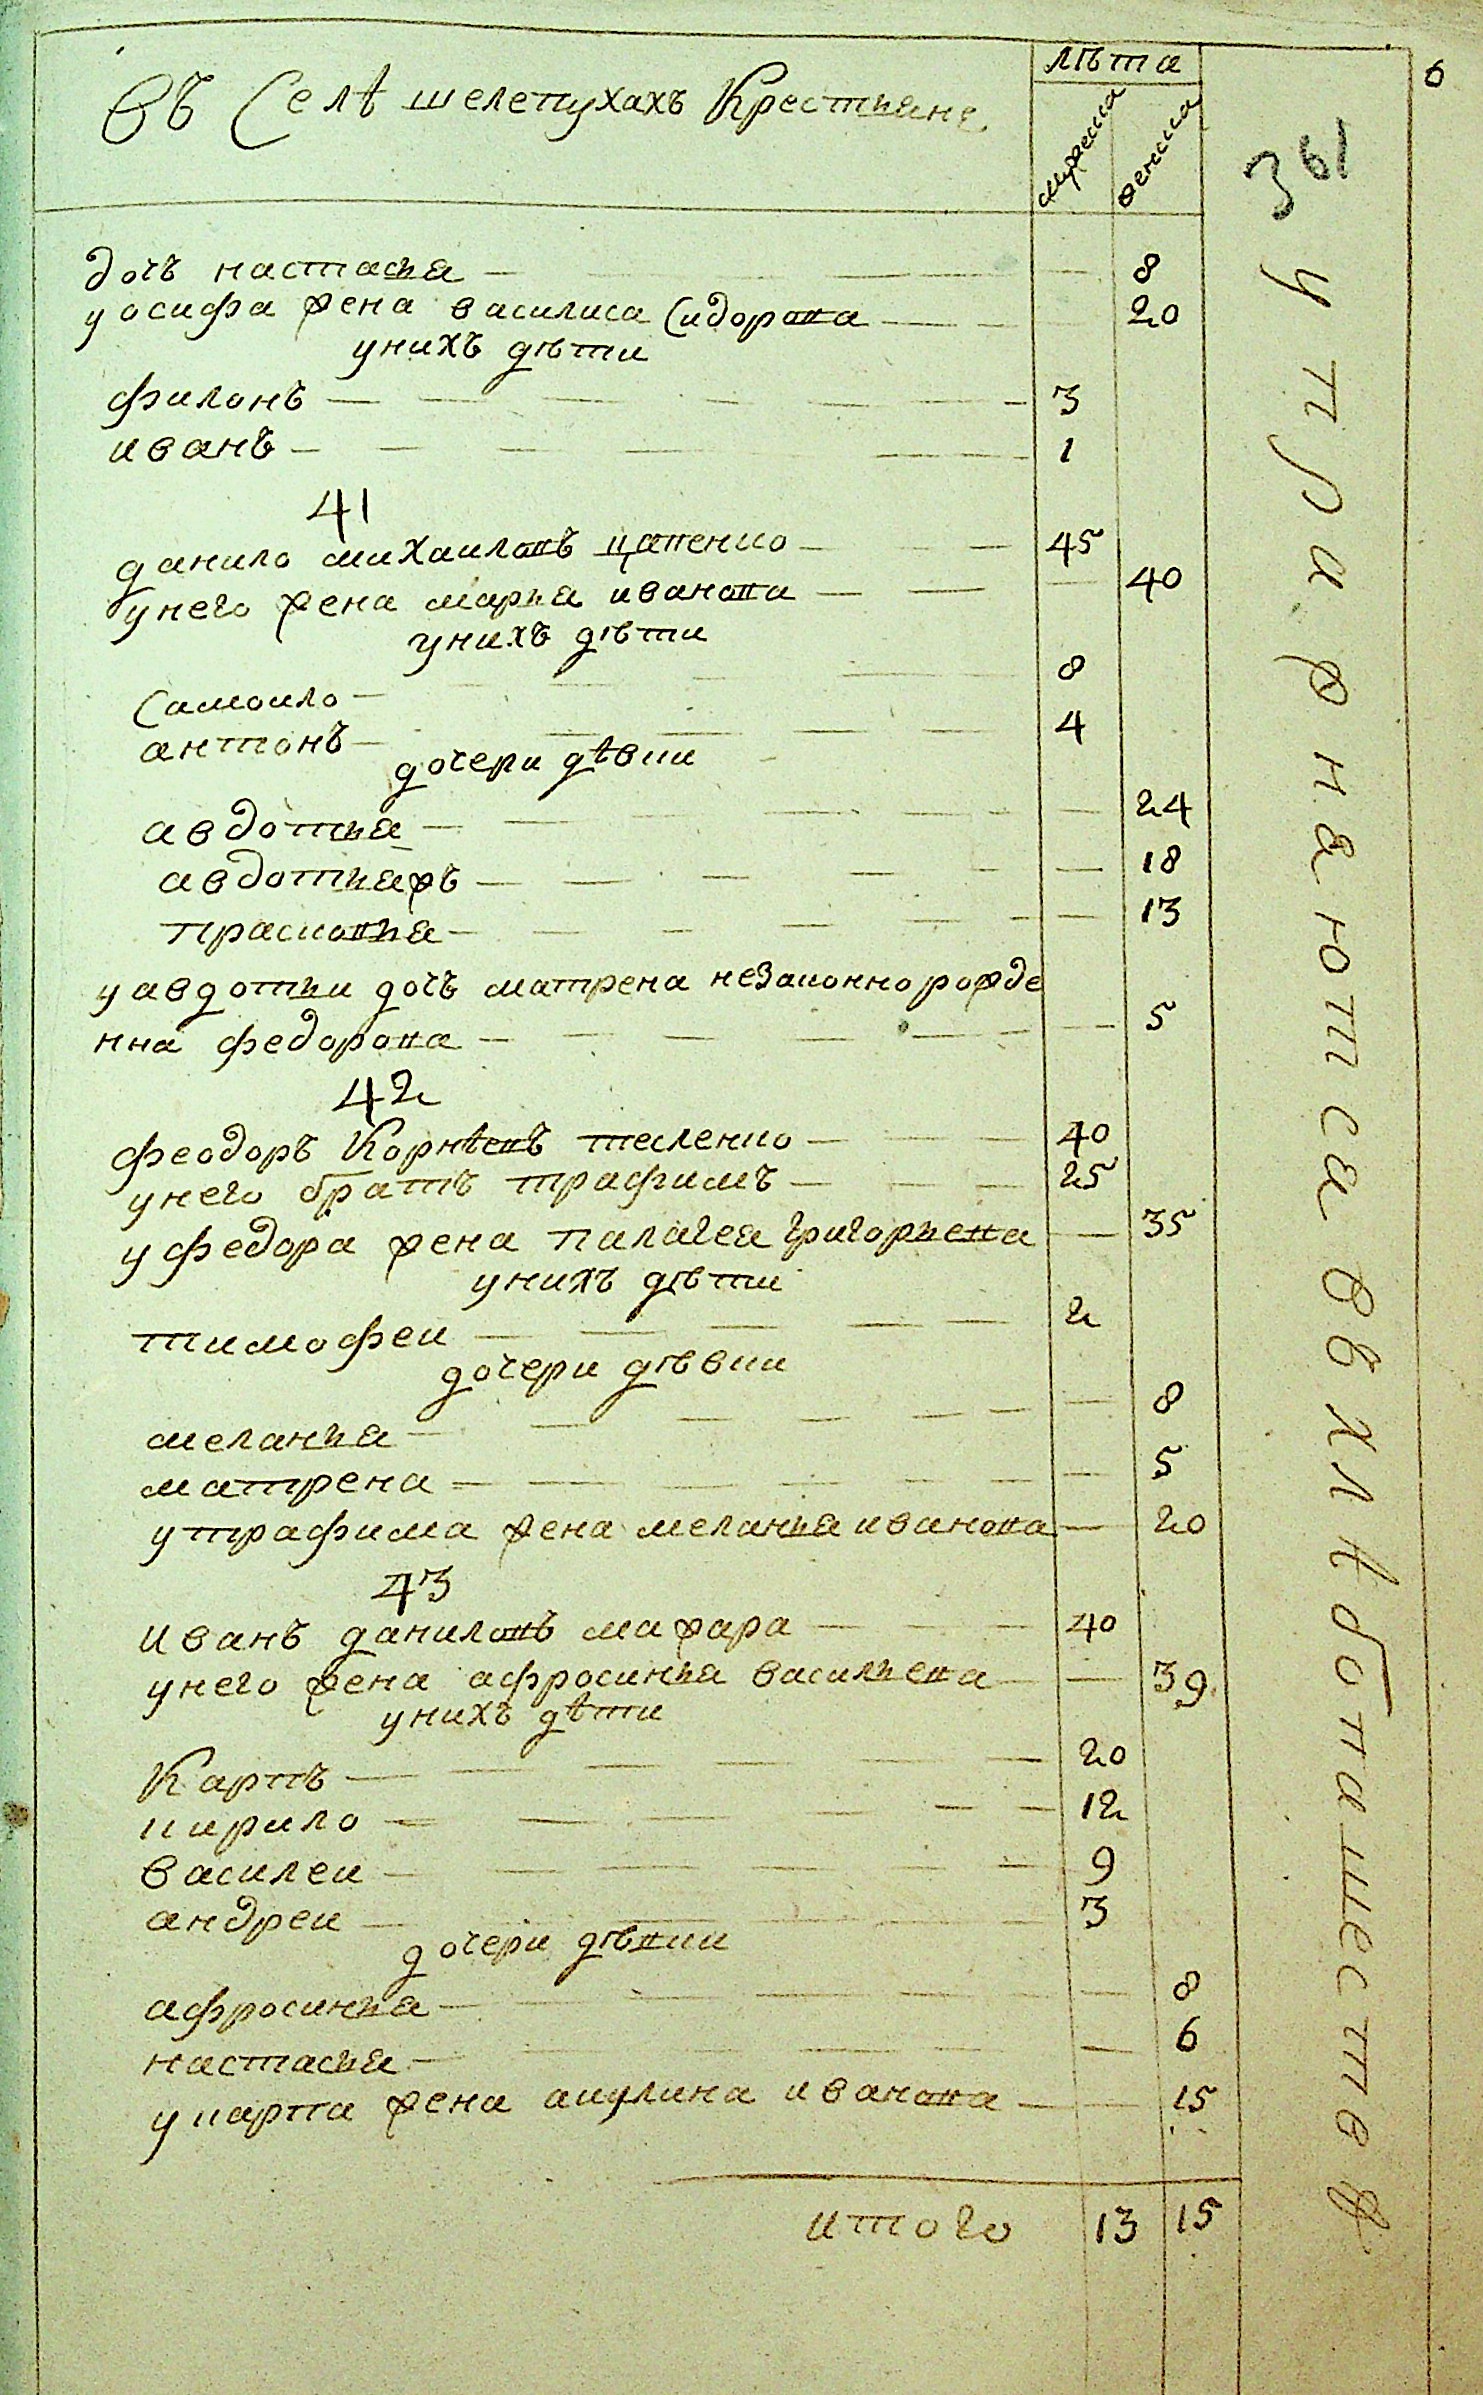 лѣта
6
въ Селѣ шелепухахъ Крестьяне
мужеска
женска
дочь настасья 8
у осифа жена василиса Сидорова 20
унихъ дѣти
филонъ 3
иванъ 1
41
данило михаиловъ цапенко 45
унего жена марья иванова 40
унихъ дѣти
Самоило 8
антонъ 4
дочери дѣвки
авдотья 24
авдотьяжъ 18
прасковья 13
у авдотьи дочь матрена незаконнорожде
нна федорова 5
42
феодоръ Корнѣевъ тесленко 40
унего братъ трафимъ 25
у федора жена палагея григорьева 35
унихъ дѣти
тимофеи 2
дочери дѣвки
меланья 8
матрена 5
у трафима жена меланья иванова 20
43
Иванъ даниловъ мажара 40
унего жена афросинья васильева 39
унихъ дѣти
Карпъ 20
кирило 12
василеи 9
андреи 3
дочери дѣвки
афросинья 8
настасья 6
у карпа жена акулина иванова 15
итого 13 15
упражнаются вхлѣбопашествѣ